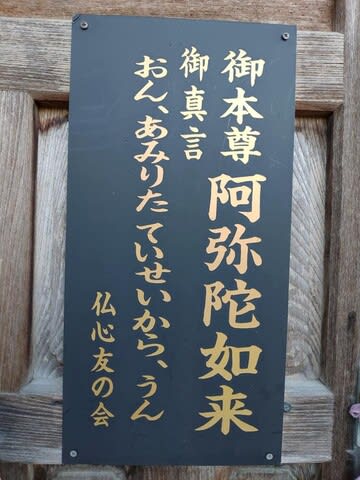 御本尊 阿弥陀如来
御真言
おん、あみりた ていせいから、うん
仏心友の会